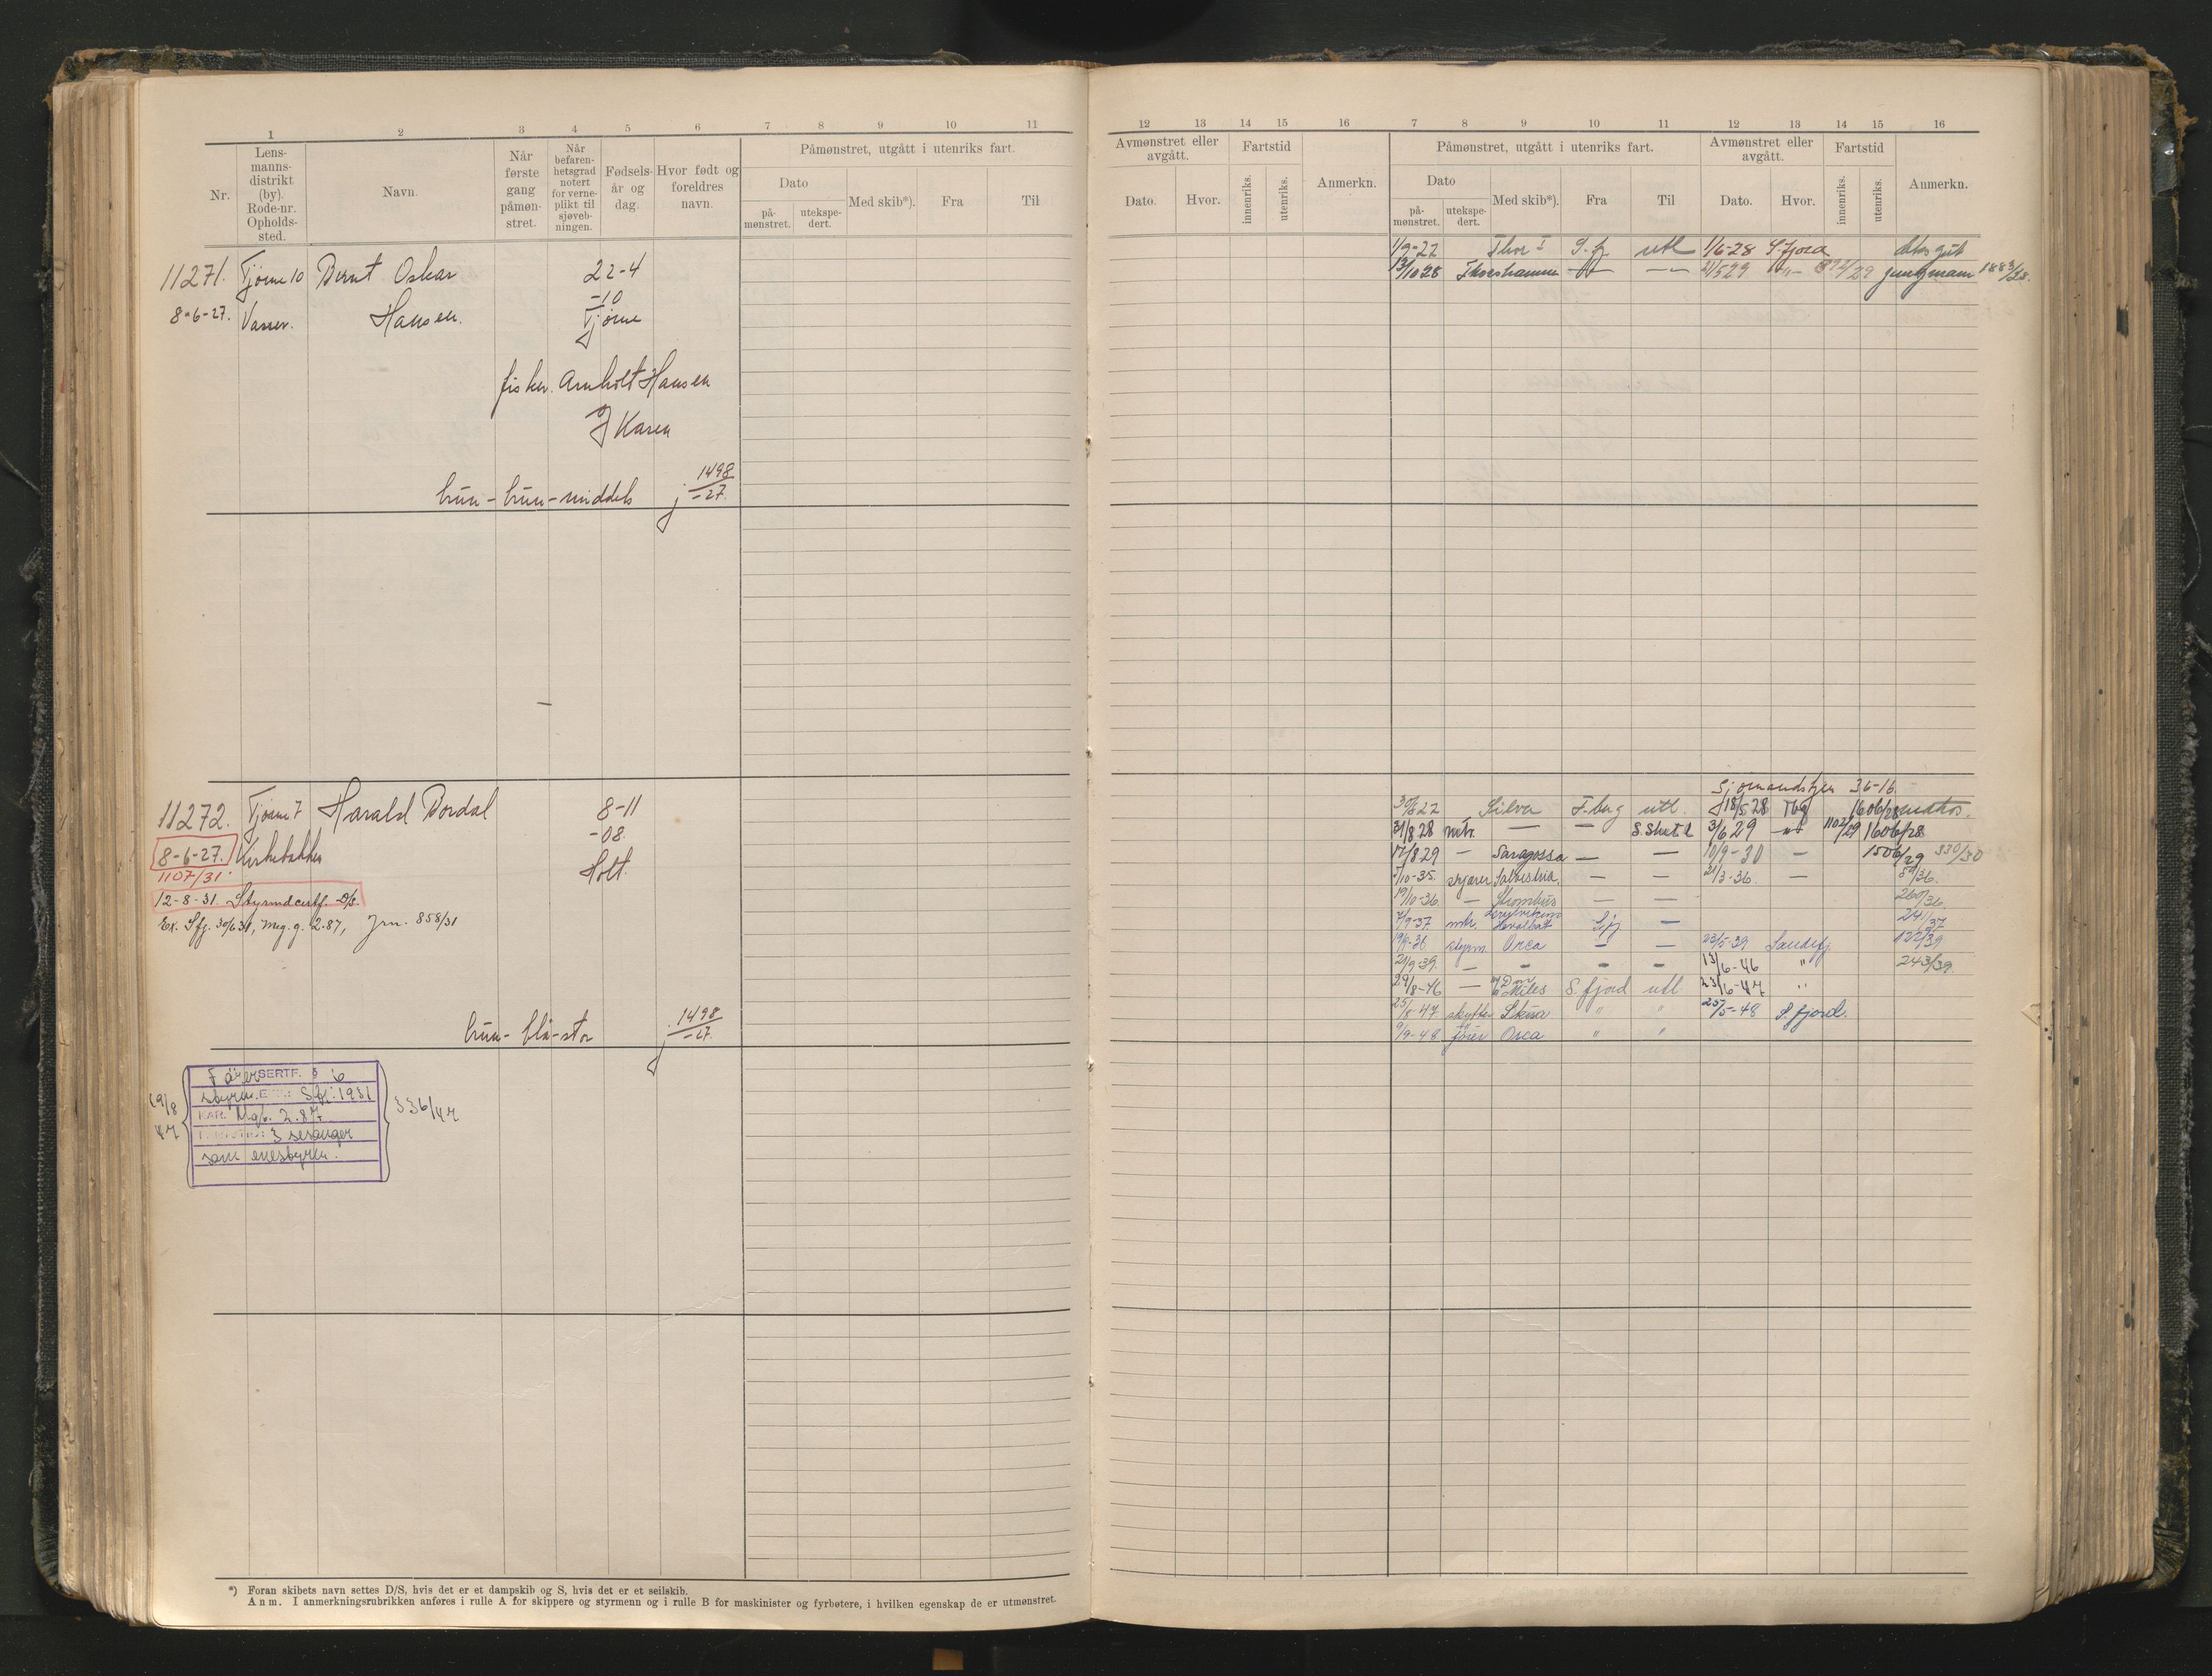 1 2 3 4 5 6 7 8 9 10 11
Nr.
Lens-
manns-
distrikt
(by).
Rode-nr.
Opholds-
sted.
Navn.
Når
første
gang
påmøn-
stret.
Når
befaren-
hetsgrad
notert
for verne-
plikt til
sjøveb-
ningen.
Fødsels-
år og
dag.
Hvor født og
foreldres
navn.
Påmønstret, utgått i utenriks fart.
Dato
på-
mønstret.
utekspe-
dert.
Med skib*).
Fra
Til
11271. Tjøme 10 Bernt Oskar 22-4
-10
8-6-27. Vasser. Hansen. Tjøme
fisker. Arnholt Hansen
Karen
brun - brun - middels j 1498
-27.
11272. Tjøme 7 Harald Bordal 8-11
-08.
8-6-27. Kirkebakken Holt.
1107/31.
12-8-31. Styrmdcertf.
Ex. Sfj. 30/6 31, meg. g. 2.87, Jrn. 858/31
brun - blå - stor j. 1498
-27.
Fører SERTF. § 6
styrm. Sfj. 1931
KAR. Mg. 2.87
3 sesonger
som enestyrm.
19/8
47
336/47
*) Foran skibets navn settes D/S, hvis det er et dampskib og S, hvis det er et seilskib.
Anm. I anmerkningsrubrikken anføres i rulle A for skippere og styrmenn og i rulle B for maskinister og fyrbøtere, i hvilken egenskap de er utmønstret.
12 13 14 15 16 7 8 9 10 11 12 13 14 15 16
Avmønstret eller
avgått.
Dato.
Hvor.
Fartstid
innenriks.
utenriks.
Anmerkn.
Påmønstret, utgått i utenriks fart.
Dato
på-
mønstret.
utekspe-
dert.
Med skib*).
Fra
Til
Avmønstret eller
avgått.
Dato.
Hvor.
Fartstid
innenriks.
utenriks.
Anmerkn.
1/9-27 Thor I S. fj. utl 1/6-28 S. fjord
13/10 28 Thorshammer -"- — 21/5 29 -"- jungmann 1883/28.
36-16
30/6 27 Silva T.berg utl. 18/5 28 Tbg 1606/28 matros.
31/8 28 mtr. — — S. Shetl 3/6 29 -"- 1102/29 1606/28
17/8 29 — Saragossa — — 10/9-30 — 1506/29 330/30
5/10-35. Salvestria. — — 21/3-36. —
19/10-36 — Strombus — — 260/36
7/9-37 mtr. Hvalbat Sfj — 241/37
styrm. Orca — — 23/5-39 Sandefj. 122/39
21/9-39. — — — — 13/6-46 " 243/39.
29/8-46 — S. fjord utl. 23/6-47 "
25/8-47 skytter " " 25/5-48 S. fjord.
9/9-48 fører Orca " "